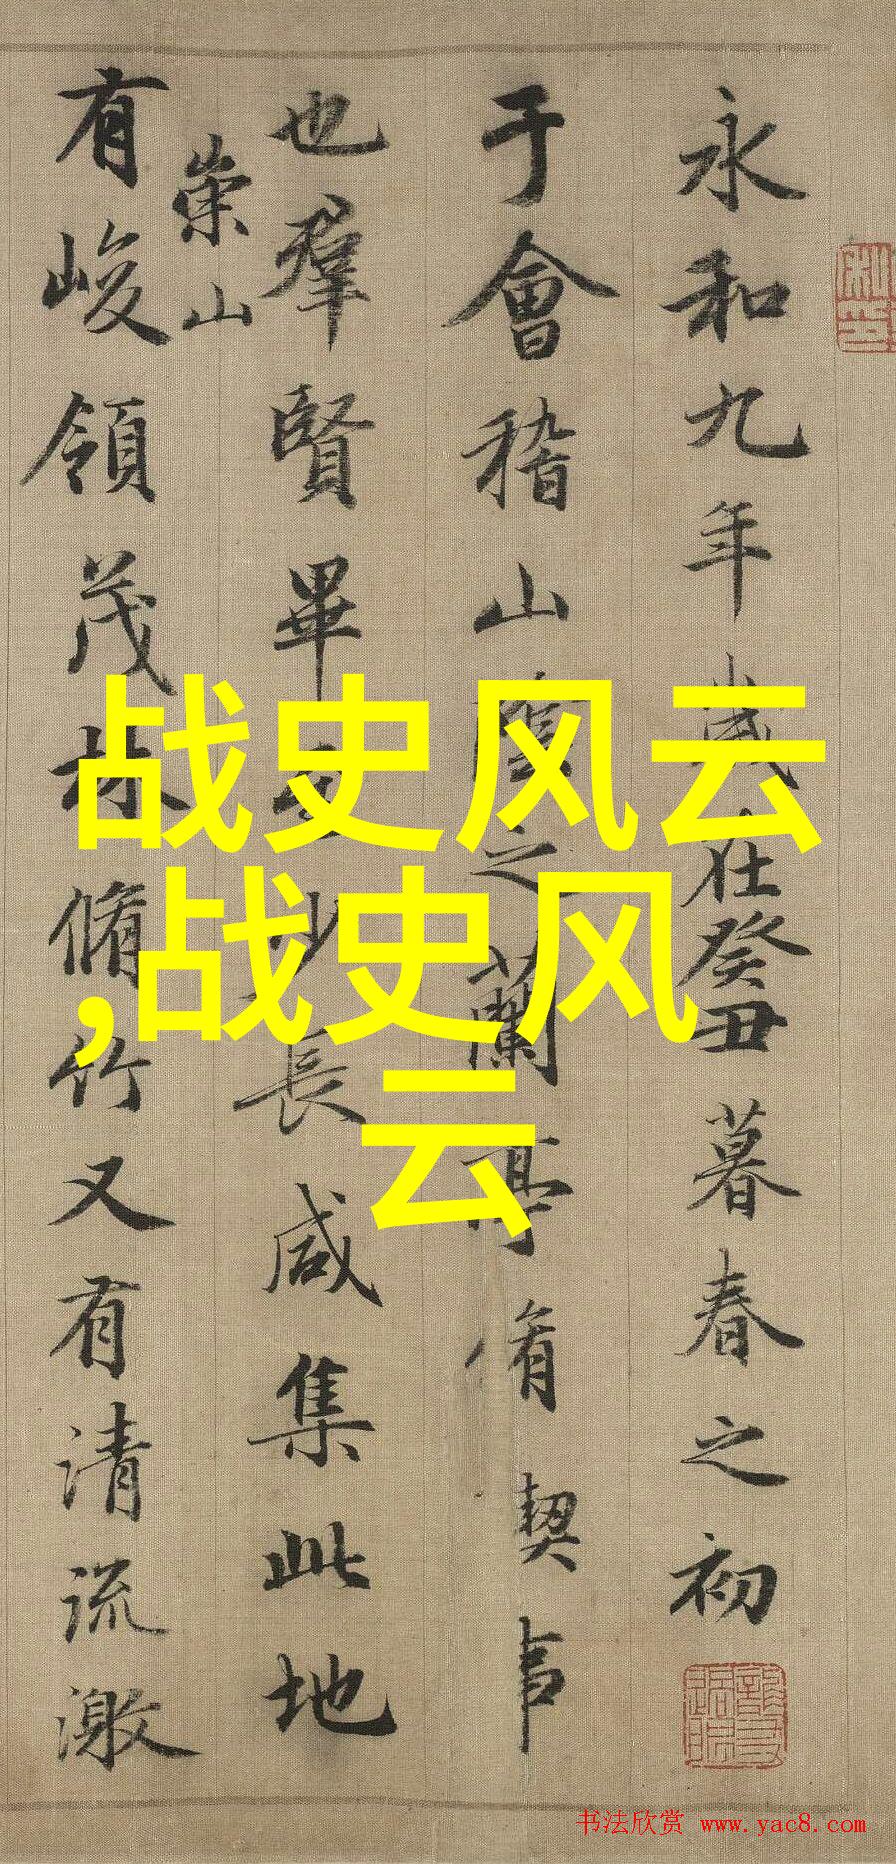 永和九年歲在癸丑暮春之初
于會稽山陰之蘭亭脩禊事
也羣賢畢至少長咸集此地
崇山
有峻領茂林脩竹又有清流激
战史风云
,战史风
云
书法欣赏 www.yac8.com